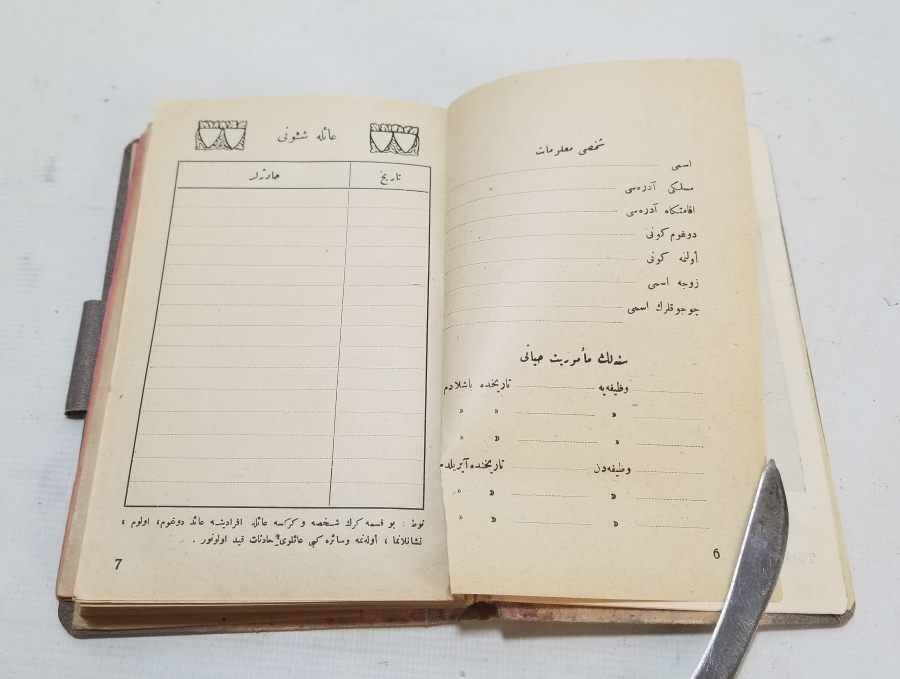 شخصی معلومات
اسمی
مسلكی آدرەسی
اقامتكاه آدرەسی
دوغوم كونی
أولنمه كونی
زوجه اسمی
چوجوقلرك اسمی
سنەلك مأموریت حیاتی
وظیفەیه تاریخنده باشلادم
» » »
» » »
وظیفەدن تاریخنده آیریلدم
» » »
» » »
6
عائله شئونی
تاریخ حادثەلر
نوط : بو قسمه كرك شخصه و كركسه عائله افرادینه عائد دوغوم، اولوم ،
نشانلانما ، أولەنمه وسائره كبی عائلوی حادثات قید اولونور .
7